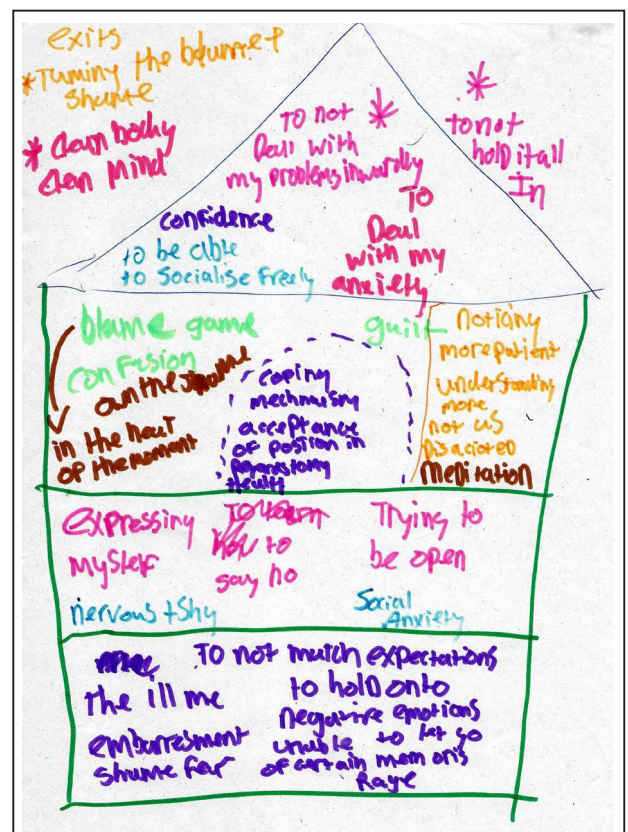 exits
*Turning the blame +
shame
* Clean body
Clean Mind
To not *
Deal with
my problems inwardly
*
to not
hold it all
In
confidence
to be able
to socialise freely
To
Deal
with my
anxiety
blame game
confusion
own the shame
in the heat
of the moment
guilt
coping
acceptance
of position in
Health
Noticing
more patient
understanding
more
not us
Disaciated
Meditation
Expressing
myself
To learn
How to
say no
Trying to
be open
nervous + shy
Social
Anxiety
The ill me
embarresment
shame fear
To not match expectations
to hold onto
negative emotions
unable to let go
of certain memoris
Rage